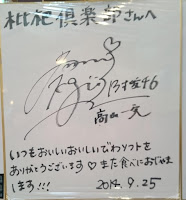 枇杷倶楽部さんへ
乃木坂46
高山一実
いつもおいしいおいしいびわソフトを
ありがとうございます♡また食べにおじゃま
します!!!
2014.9.25